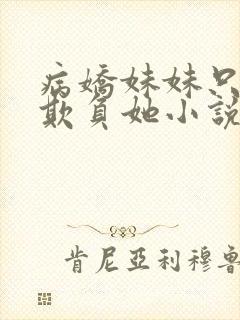 病嬌妹妹只
欺負她小說
肯尼亞利穆魯